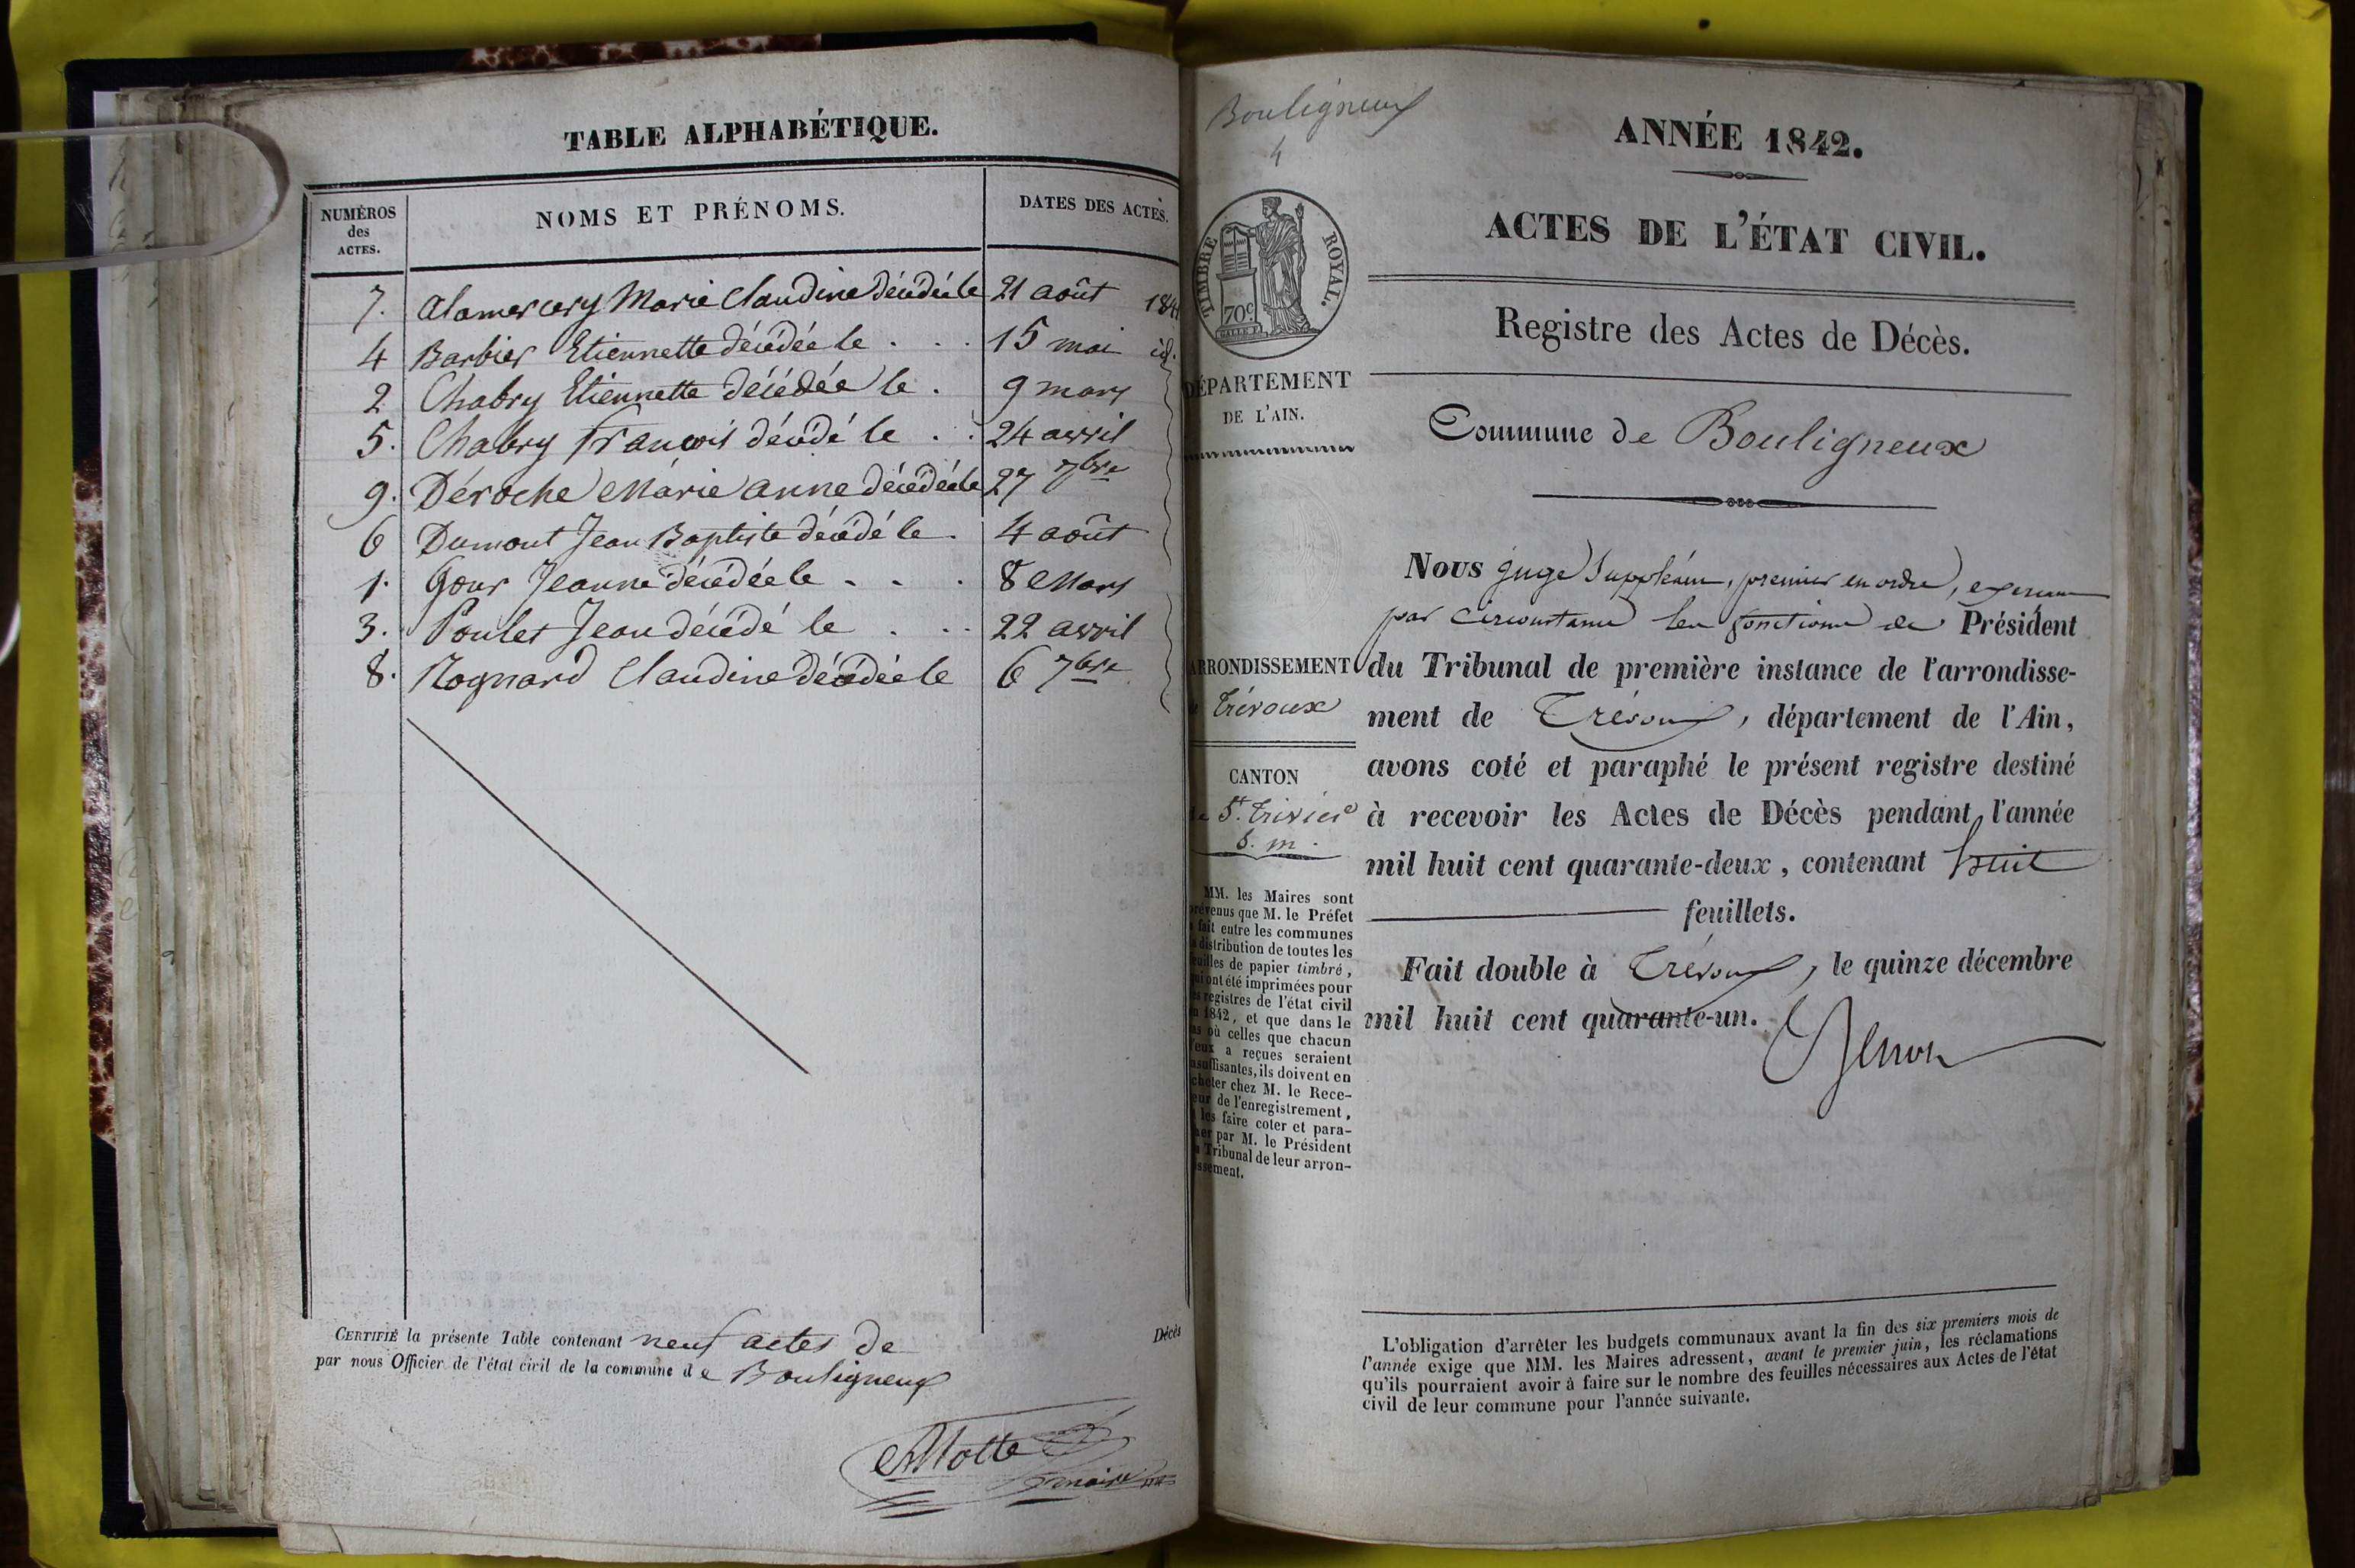 TABLE ALPHABÉTIQUE.
NUMÉROS des ACTES. NOMS ET PRÉNOMS. DATES DES ACTES.
7. Alamercery Marie Claudine décédée le 21 août 184
4 Barbier Etiennette décédée le . . . 15 mai id.
2 Chabry Etiennette décédée le . 9 mars
5. Chabry François décédé le . . 24 avril
9. Déroche Marie anne décédée le 27 7bre
6 Dumont Jean Baptiste décédé le . 4 août
1. Gour Jeanne décédée le . . . 8 Mars
3. Poulet Jean décédé le . . . 22 avril
8. Rognard Claudine décédée le 6 7bre
CERTIFIÉ la présente Table contenant neuf actes de Décès
par nous Officier de l'état civil de la commune de Bouligneux
Motte
maire
Bouligneux
4
TIMBRE ROYAL.
70c
DÉPARTEMENT
DE L'AIN.
ARRONDISSEMENT
Trévoux
CANTON
de St. Trivier
S. m.
MM. les Maires sont
prévenus que M. le Préfet
a fait entre les communes
la distribution de toutes les
feuilles de papier timbré,
qui ont été imprimées pour
les registres de l'état civil
en 1842, et que dans le
cas où celles que chacun
d'eux a reçues seraient
insuffisantes, ils doivent en
acheter chez M. le Rece-
veur de l'enregistrement,
les faire coter et para-
pher par M. le Président
du Tribunal de leur arron-
dissement.
ANNÉE 1842.
ACTES DE L'ÉTAT CIVIL.
Registre des Actes de Décès.
Commune de Bouligneux
Nous juge suppléant, premier en ordre, exerçant
par circonstance les fonctions de Président
du Tribunal de première instance de l'arrondisse-
ment de Trévoux, département de l'Ain,
avons coté et paraphé le présent registre destiné
à recevoir les Actes de Décès pendant l'année
mil huit cent quarante-deux, contenant huit
feuillets.
Fait double à Trévoux, le quinze décembre
mil huit cent quarante-un.
L'obligation d'arrêter les budgets communaux avant la fin des six premiers mois de
l'année exige que MM. les Maires adressent, avant le premier juin, les réclamations
qu'ils pourraient avoir à faire sur le nombre des feuilles nécessaires aux Actes de l'état
civil de leur commune pour l'année suivante.